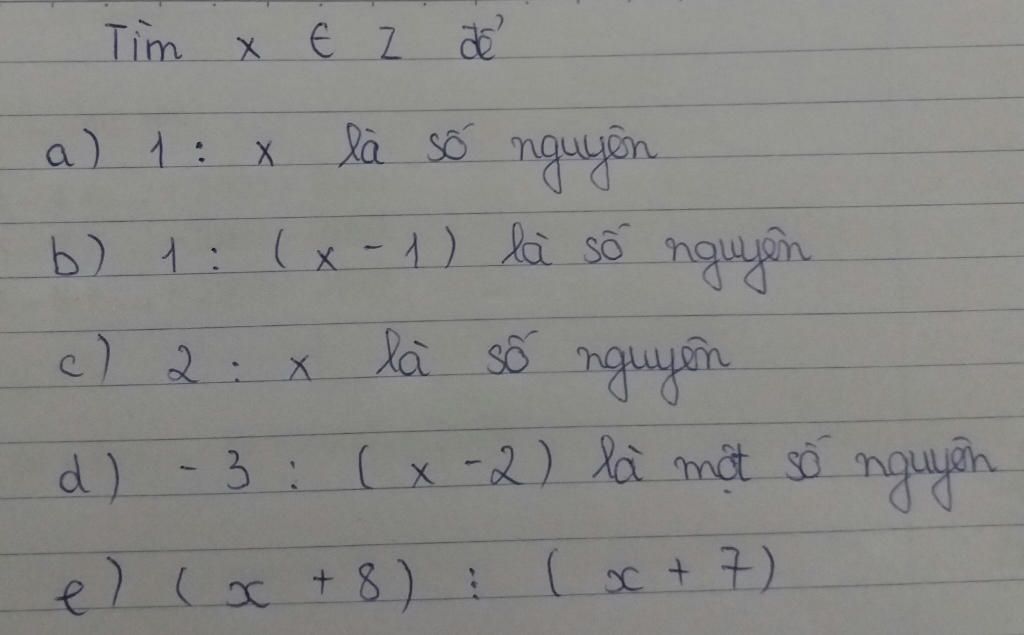 Tìm x ∈ Z để
a) 1 : x là số nguyên
b) 1 : (x - 1) là số nguyên
c) 2 : x là số nguyên
d) - 3 : (x - 2) là một số nguyên
e) (x + 8) : (x + 7)